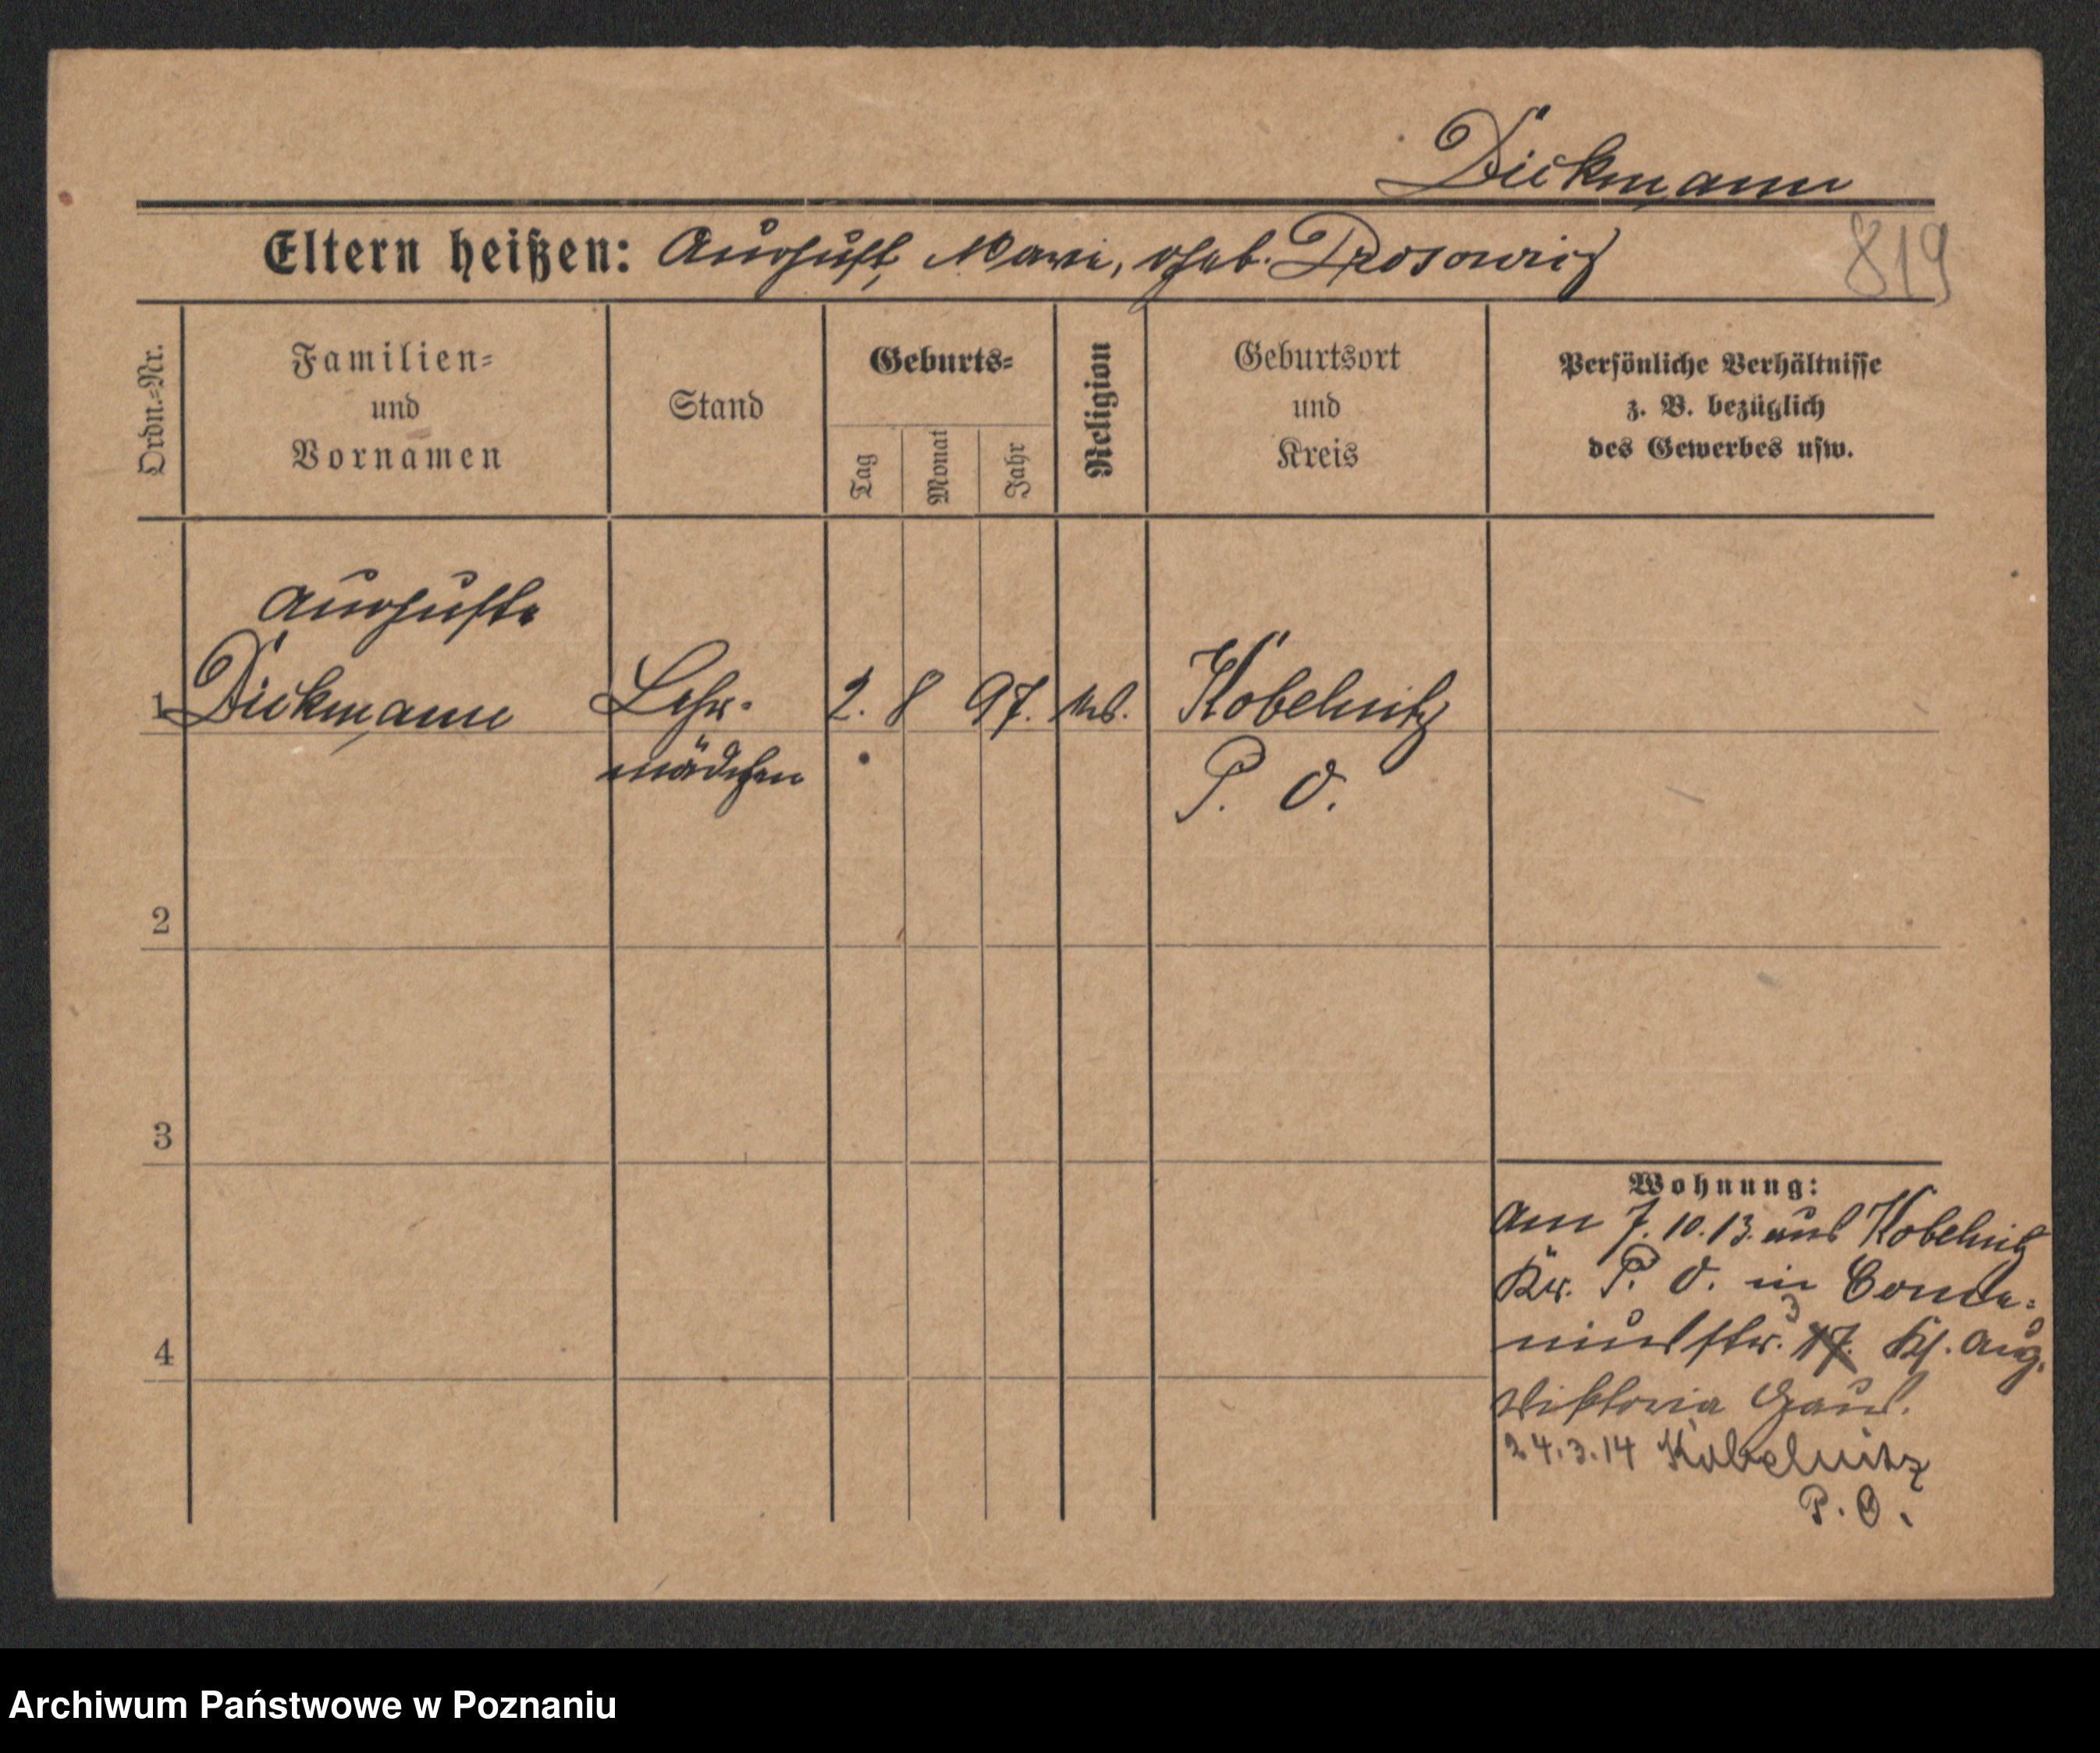 Dickmann
Eltern heißen: August, Marie, geb. Drosowitz
819
Ordn.=Nr.
Familien=
und
Vornamen
Stand
Geburts=
Tag
Monat
Jahr
Religion
Geburtsort
und
Kreis
Persönliche Verhältnisse
z. B. bezüglich
des Gewerbes usw.
Auguste
1 Dickmann Lehr- 2. 8 97. Kobelnitz
mädchen P. O.
2
3
4
Wohnung:
Am 7.10.13. aus Kobelnitz
Kr. P. O. in Come-
niusstr. 3 17. Aug.
Viktoria Haus.
24.3.14 Kobelnitz
P. O.
Archiwum Państwowe w Poznaniu